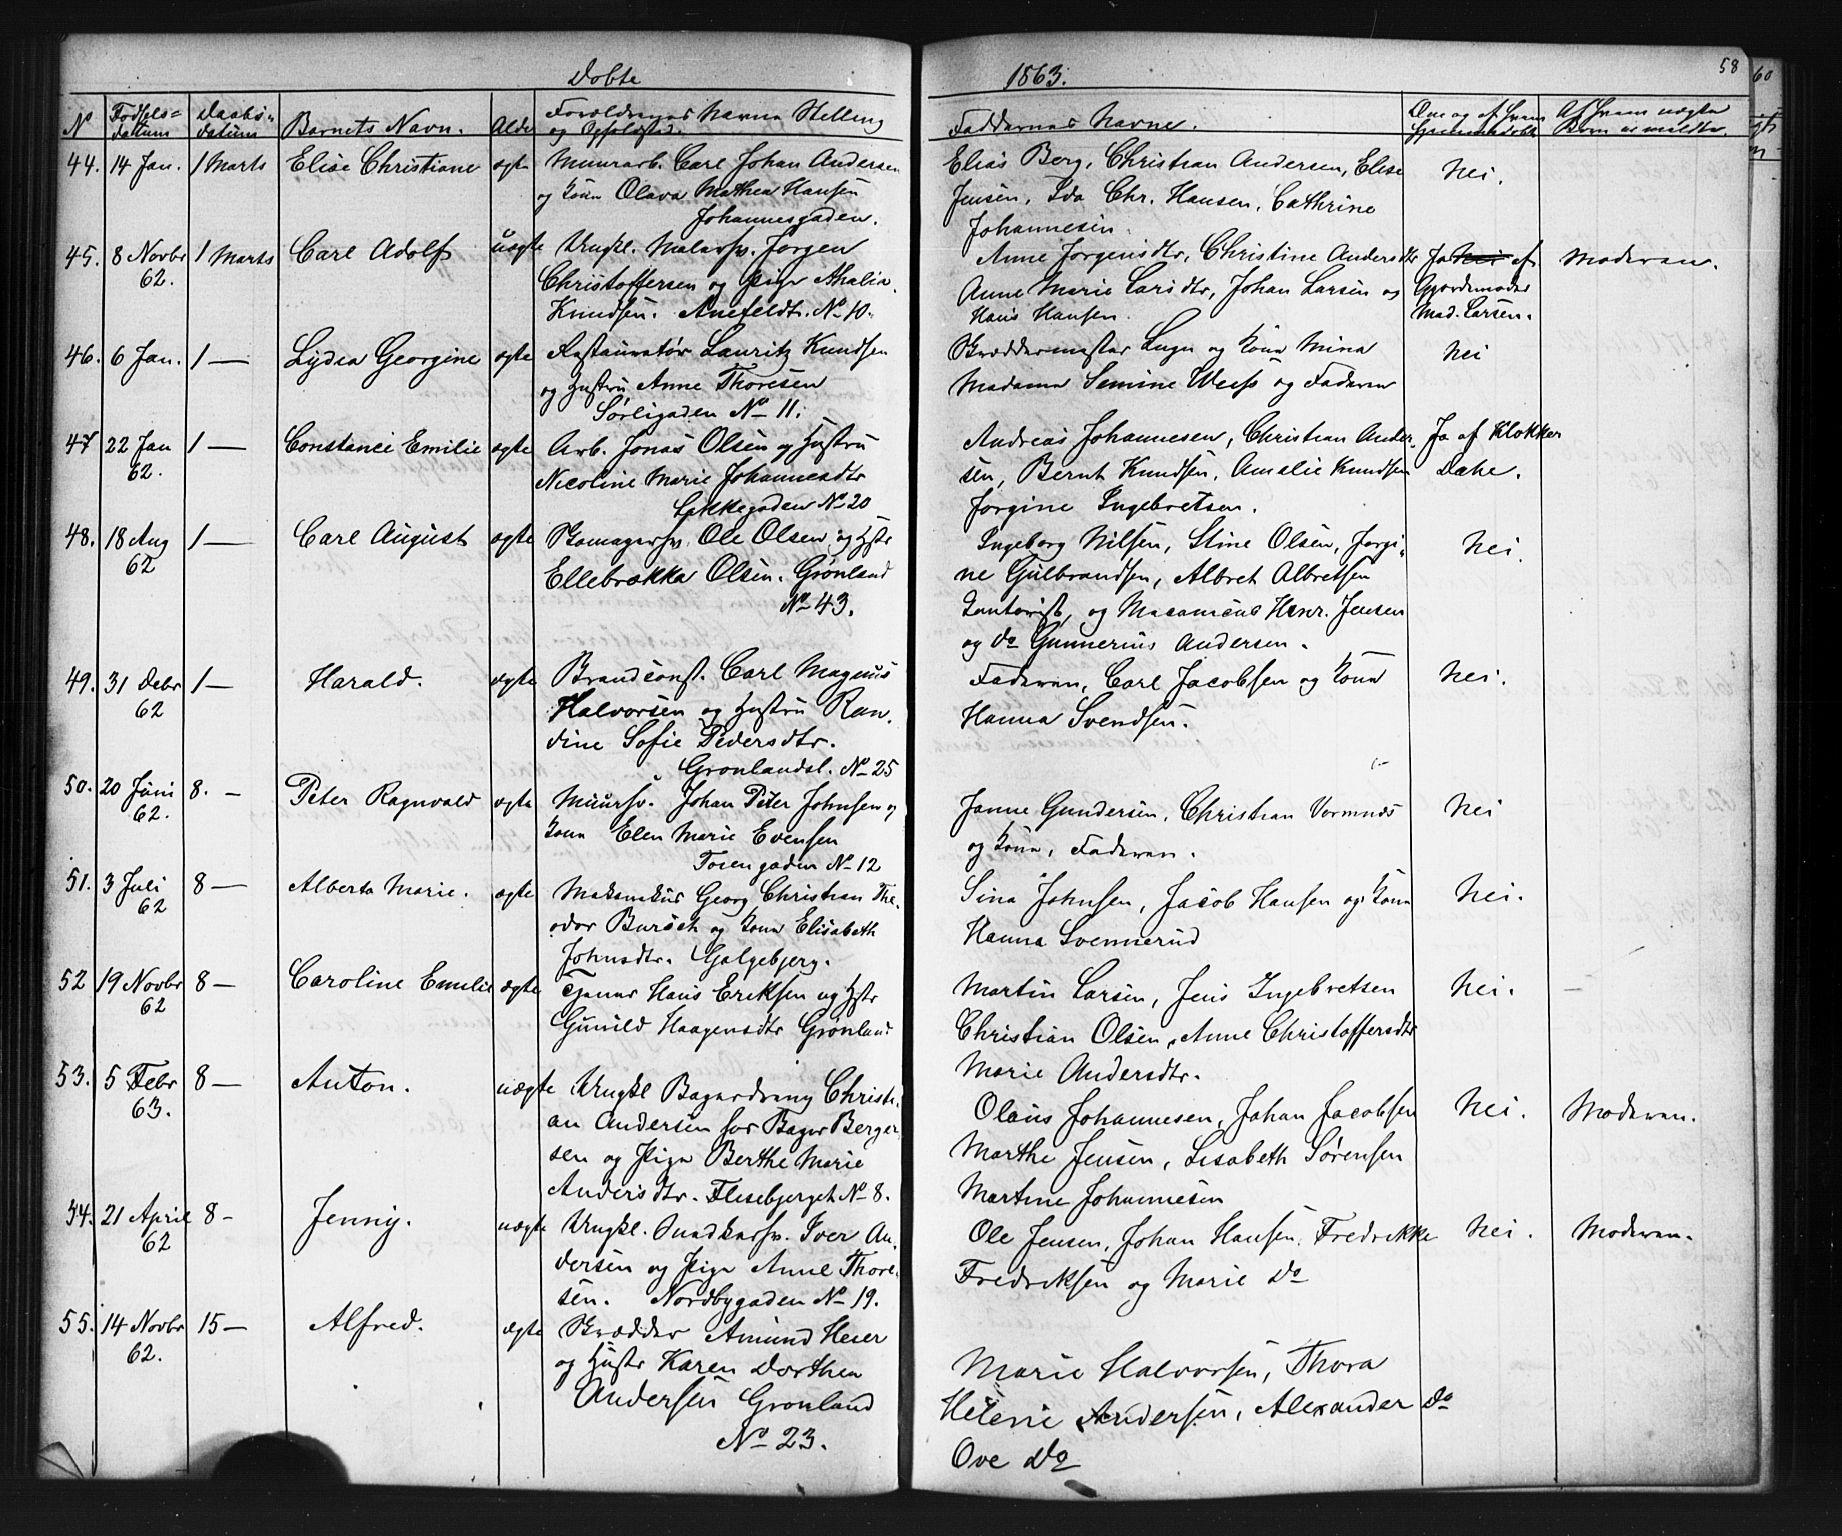 Døbte 1863. 58
No Fødsels= datum Daabs= datum Barnets Navn. Alder Forældrenes Navne Stilling og Opholdsted. Faddernes Navne. Om og af hvem hjemmedøbt Af hvem uægte Børn er meldte
44. 14 Jan. 1 Marts Elise Christiane ægte Muurarb. Carl Johan Andersen
og Kone Olava Mathea Hansen
Johannesgaden.
Elias Berg, Christian Andersen, Elise
Jensen, Ida Chr. Hansen, Cathrine
Johannesen.
Nei.
45. 8 Novbr 62. 1 Marts Carl Adolf uægte Ungkl. Malersv. Jørgen
Christoffersen og Pige Athalia
Knudsen. Anefeldt. No 10.
Anne Jørgensdtr, Christine Andersdtr
Anne Marie Larsdtr, Johan Larsen og
Hans Hansen.
Ja af
Gjordemoder
Mad. Larsen.
Moderen.
46. 6 Jan. 1 — Lydia Georgine ægte Restauratør Lauritz Knudsen
og Hustru Anne Thoresen
Sørligaden No 11.
og Kone Mina
Madame Semine Weiss og Faderen
Nei
47 22 Jan 62. 1 — Constance Emilie ægte Arb. Jonas Olsen og Hustru
Nicoline Marie Johannesdtr
Lakkegaden No 20
Andreas Johannesen, Christian Ander
sen, Bernt Knudsen, Amalie Knudsen
Jørgine Ingebretsen.
Ja af Klokker
Dahe.
48. 18 Aug 62 1 — Carl August ægte Skomagersv. Ole Olsen og Hstr
Ellebrekka Olsen. Grønland
No 43.
Ingeborg Nilsen, Stine Olsen, Jørgi=
ne Gulbrandsen, Albret Albretsen
Kontorist, og Macanicus Henr. Jensen
og do Gunnerius Andersen.
Nei.
49. 31 Debr 62 1 — Harald. ægte Brandconst. Carl Magnus
Halvorsen og Hustru Ran
dine Sofie Pedersdtr.
Grønlandsl. No 25
Faderen, Carl Jacobsen og Kone
Hanna Svendsen.
Nei.
50. 20 Juni 62. 8. — Peter Ragnvald ægte Muursv. Johan Peter Johnsen og
Kone Elen Marie Evensen
Tøiengaden No 12
Janne Gundersen, Christian Vormnes
og Kone, Faderen.
Nei
51. 3 Juli 62 8 — Alberta Marie. ægte Mekanikus Georg Christian The
odor Bursch og Kone Elisabeth
Johnsdtr. Galgebjerg.
Sina Johnsen, Jacob Hansen og Kone
Hanna Svennerud
Nei.
52 19 Novbr 62 8 — Caroline Emilie ægte Tjener Hans Eriksen og Hstr
Gunild Haagensdtr Grønland
Martin Larsen, Jens Ingebretsen
Christian Olsen, Anne Christoffersdtr
Marie Andersdtr.
Nei.
53. 5 Febr 63. 8 — Anton. uægte Ungkl Bagerdreng Christi
an Andersen for Bager Berger
sen og Pige Berthe Marie
Andersdtr. Flisebjerget No 8.
Olaus Johannesen, Johan Jacobsen
Marthe Jensen, Lisabeth Sørensen
Martine Johannesen
Nei.
Moderen.
54. 21 April 62 8 — Jenny. uægte Ungkl. Snedkersv. Iver An
dersen og Pige Anne Thore
sen. Nordbygaden No 19.
Ole Jensen, Johan Hansen, Fredrikke
Fredriksen og Marie do
Nei.
Moderen.
55. 14 Novbr 62. 15 — Alfred. ægte Amund Heier
og Hustr Karen Dorthea
Andersen Grønland
No 23.
Marie Halvorsen, Thora
Helene Andersen, Alexander do
Ove do